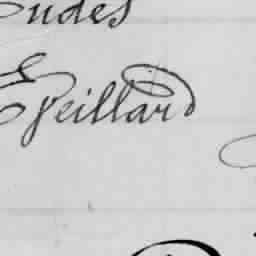 Eudes
Epeillard